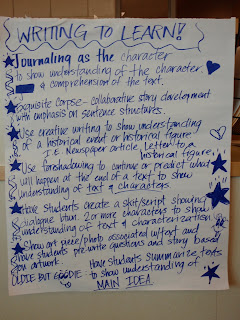 WRITING TO LEARN!
Journaling as the character
to show understanding of the character
& comprehension of the text.
Exquisite Corpse - collaborative story development
with emphasis on sentence structures.
Use creative writing to show understanding
of a historical event or historical figure
I.E Newspaper Article, Letter to a
historical figure,
Use foreshadowing to continue or predict what
will happen at the end of a text to show
understanding of text & characters.
Have students create a skit/script showing
dialogue btwn. 2 or more characters to show
understanding of text & characterization
Show art piece/photo associated w/text and
have students pre-write questions and story based
on artwork.
OLDIE BUT GOODIE
Have students summarize texts
to show understanding of
MAIN IDEA